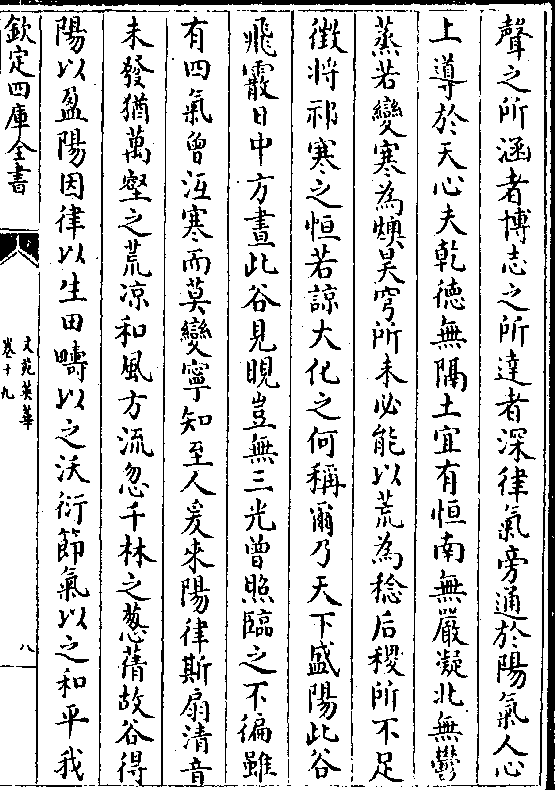 聲之所涵者博志之所達者深律氣旁通於陽氣人心
上導於天心夫乾德無隔土宜有恒南無嚴凝北無鬱
蒸若變寒為燠昊穹所未必能以荒為稔后稷所不足
徴將祁寒之恒若諒大化之何稱爾乃天下盛陽此谷
飛霰日中方晝此谷見晛豈無三光曾照臨之不徧雖
有四氣曾沍寒而莫變寧知至人爰來陽律斯扇清音
未發猶萬壑之荒凉和風方流忽千林之葱蒨故谷得
陽以盈陽因律以生田疇以之沃衍節氣以之和平我
欽定四庫全書
文苑英華
卷十九
八